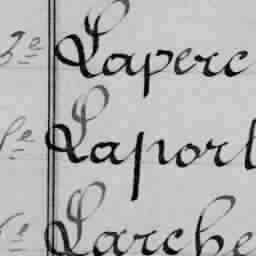 3e Laperc
e Laport
e Larche